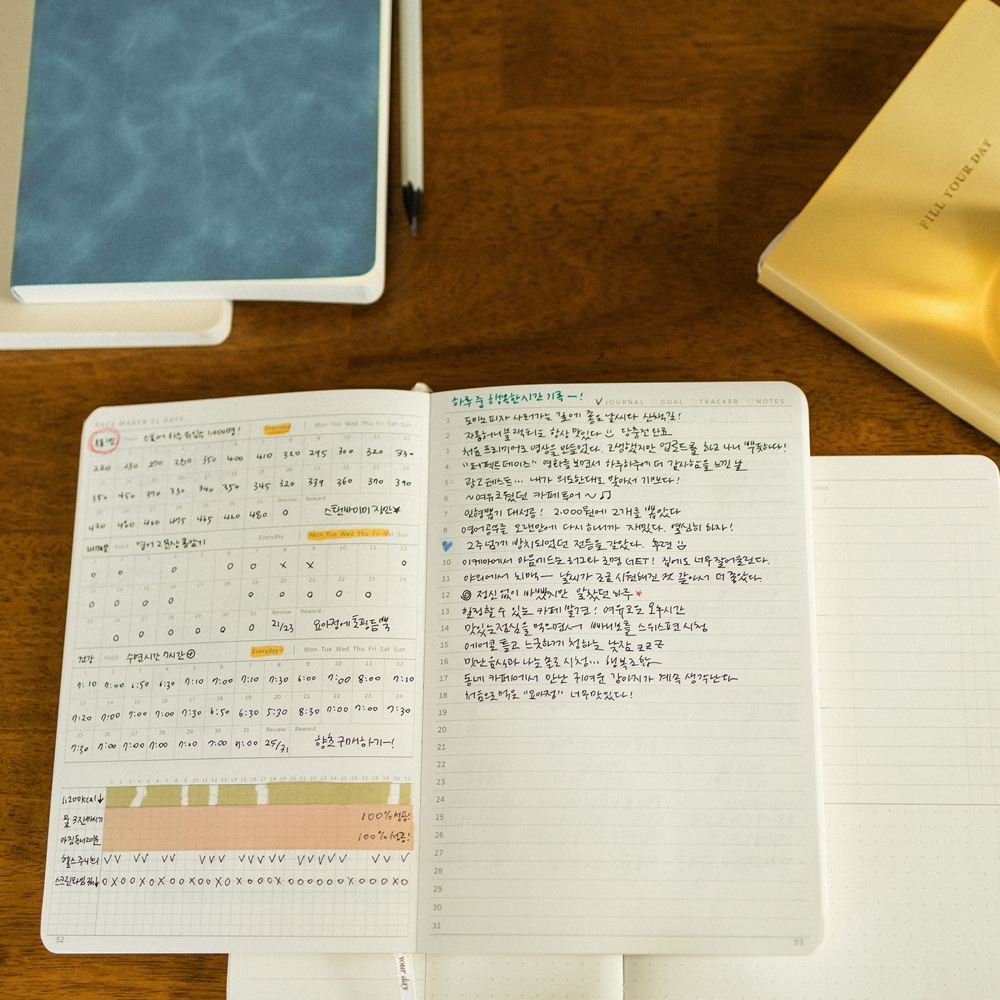 FILL YOUR DAY
PACE MAKER 31 DAYS
Habit
Everyday
Mon Tue Wed Thu Fri Sat Sun
280 430 270 280 350 400 410 320 295 300 320 330
350 450 370 330 340 350 345 320 339 360 370 390
Review Reward
420 480 460 475 465 420 480 0 스탠바이미 장만★
Habit 영어 2문장 통암기 Everyday Mon Tue Wed Thu Fri Sat Sun
Review Reward
21/23 요아정에 토핑듬뿍
건강 Habit 수면시간 7시간⊕ Everyday Mon Tue Wed Thu Fri Sat Sun
7:10 7:00 6:50 6:30 7:10 7:00 7:10 7:30 6:00 7:00 8:00 7:10
7:20 7:00 7:00 7:00 7:30 6:50 6:30 5:30 8:30 7:00 7:00 7:30
Review Reward
7:30 7:00 7:00 7:00 7:10 7:00 7:00 25/31 향초 구매하기-!
1,200kcal↓
물 3잔마시기 100%성공!
아침독서20분 100%성공!
헬스 주4회
52
하루 중 행복한 시간 기록 —!
✓ JOURNAL GOAL TRACKER NOTES
1 도미노피자 사러가는 길에 좋은 날씨다 산책길!
2 항상 맛있다 당충전 완료
3 처음 프리미어로 영상을 만들었다. 고생했지만 업로드를 하고 나니 뿌듯하다!
4 "퍼펙트데이즈" 영화를 보면서 하루하루가 더 감사함을 느낀 날
5 광고테스트… 내가 의도한대로 맞아서 기쁘다!
6 ~여유로웠던 카페투어~♫
7 인형뽑기 대성공! 2,000원에 2개를 뽑았다
8 영어공부를 오랜만에 다시하니까 재밌다. 열심히 하자!
♥ 2주넘게 방치되었던 전등을 갈았다. 후련
10 이케아에서 마음에드는 러그와 조명 GET! 집에도 너무 잘어울린다.
11 야외에서 치맥— 날씨가 조금 시원해진 것 같아서 더 좋았다.
12 정신 없이 바빴지만 알찼던 하루 ★
13 힐링할 수 있는 카페 발견! 여유로운 오후시간
14 맛있는점심을 먹으면서 빠니보틀 스위스편 시청
15 에어콘 틀고 느긋하기 청하는 낮잠 zzz
16 맛난음식과 나는솔로 시청… 행복조합~
17 동네 카페에서 만난 귀여운 강아지가 계속 생각난다
18 처음으로 먹은 "요아정" 너무맛있다!
19
20
21
22
23
24
25
26
27
28
29
30
31
53
your day